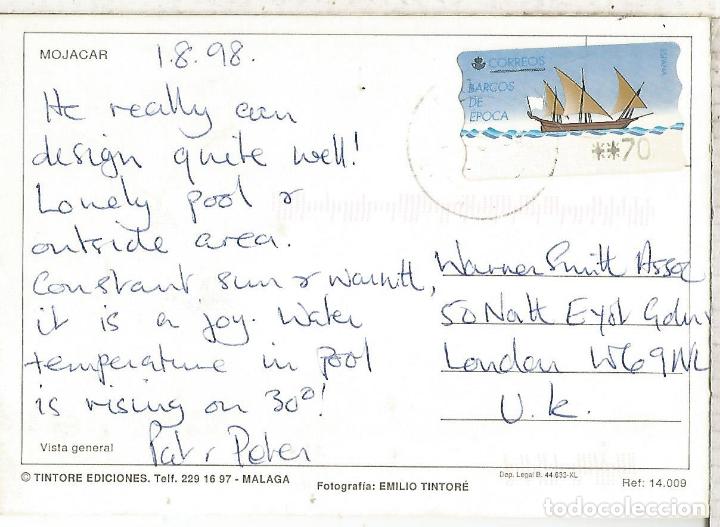 MOJACAR
1.8.98.
CORREOS
ESPAÑA
BARCOS
DE
EPOCA
**70
He really can
design quite well!
Lonely pool &
outside area.
Constant sun & warmth,
it is a joy. Water
temperature in pool
is rising on 30°!
Pat & Peter
Warner Smith Assoc
50 Nath
London W6 9NL
U.K.
Vista general
© TINTORE EDICIONES. Telf. 229 16 97 - MALAGA
Fotografía: EMILIO TINTORÉ
Dep. Legal B. 44.633-XL
Ref: 14.009
todocoleccion